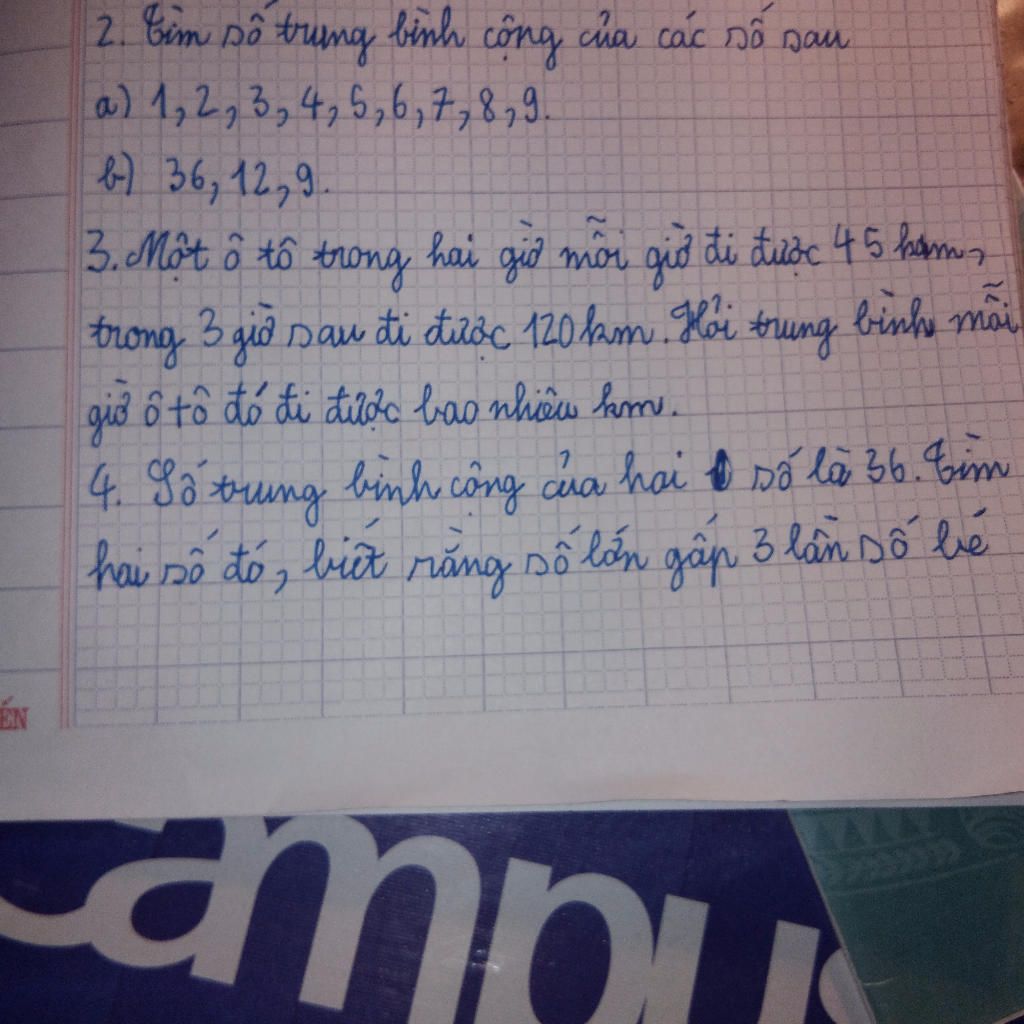 2. Tìm số trung bình cộng của các số sau
a) 1, 2, 3, 4, 5, 6, 7, 8, 9.
b) 36, 12, 9.
3. Một ô tô trong hai giờ mỗi giờ đi được 45 km,
trong 3 giờ sau đi được 120 km. Hỏi trung bình mỗi
giờ ô tô đó đi được bao nhiêu km.
4. Số trung bình cộng của hai số là 36. Tìm
hai số đó, biết rằng số lớn gấp 3 lần số bé
ẾN
Campus